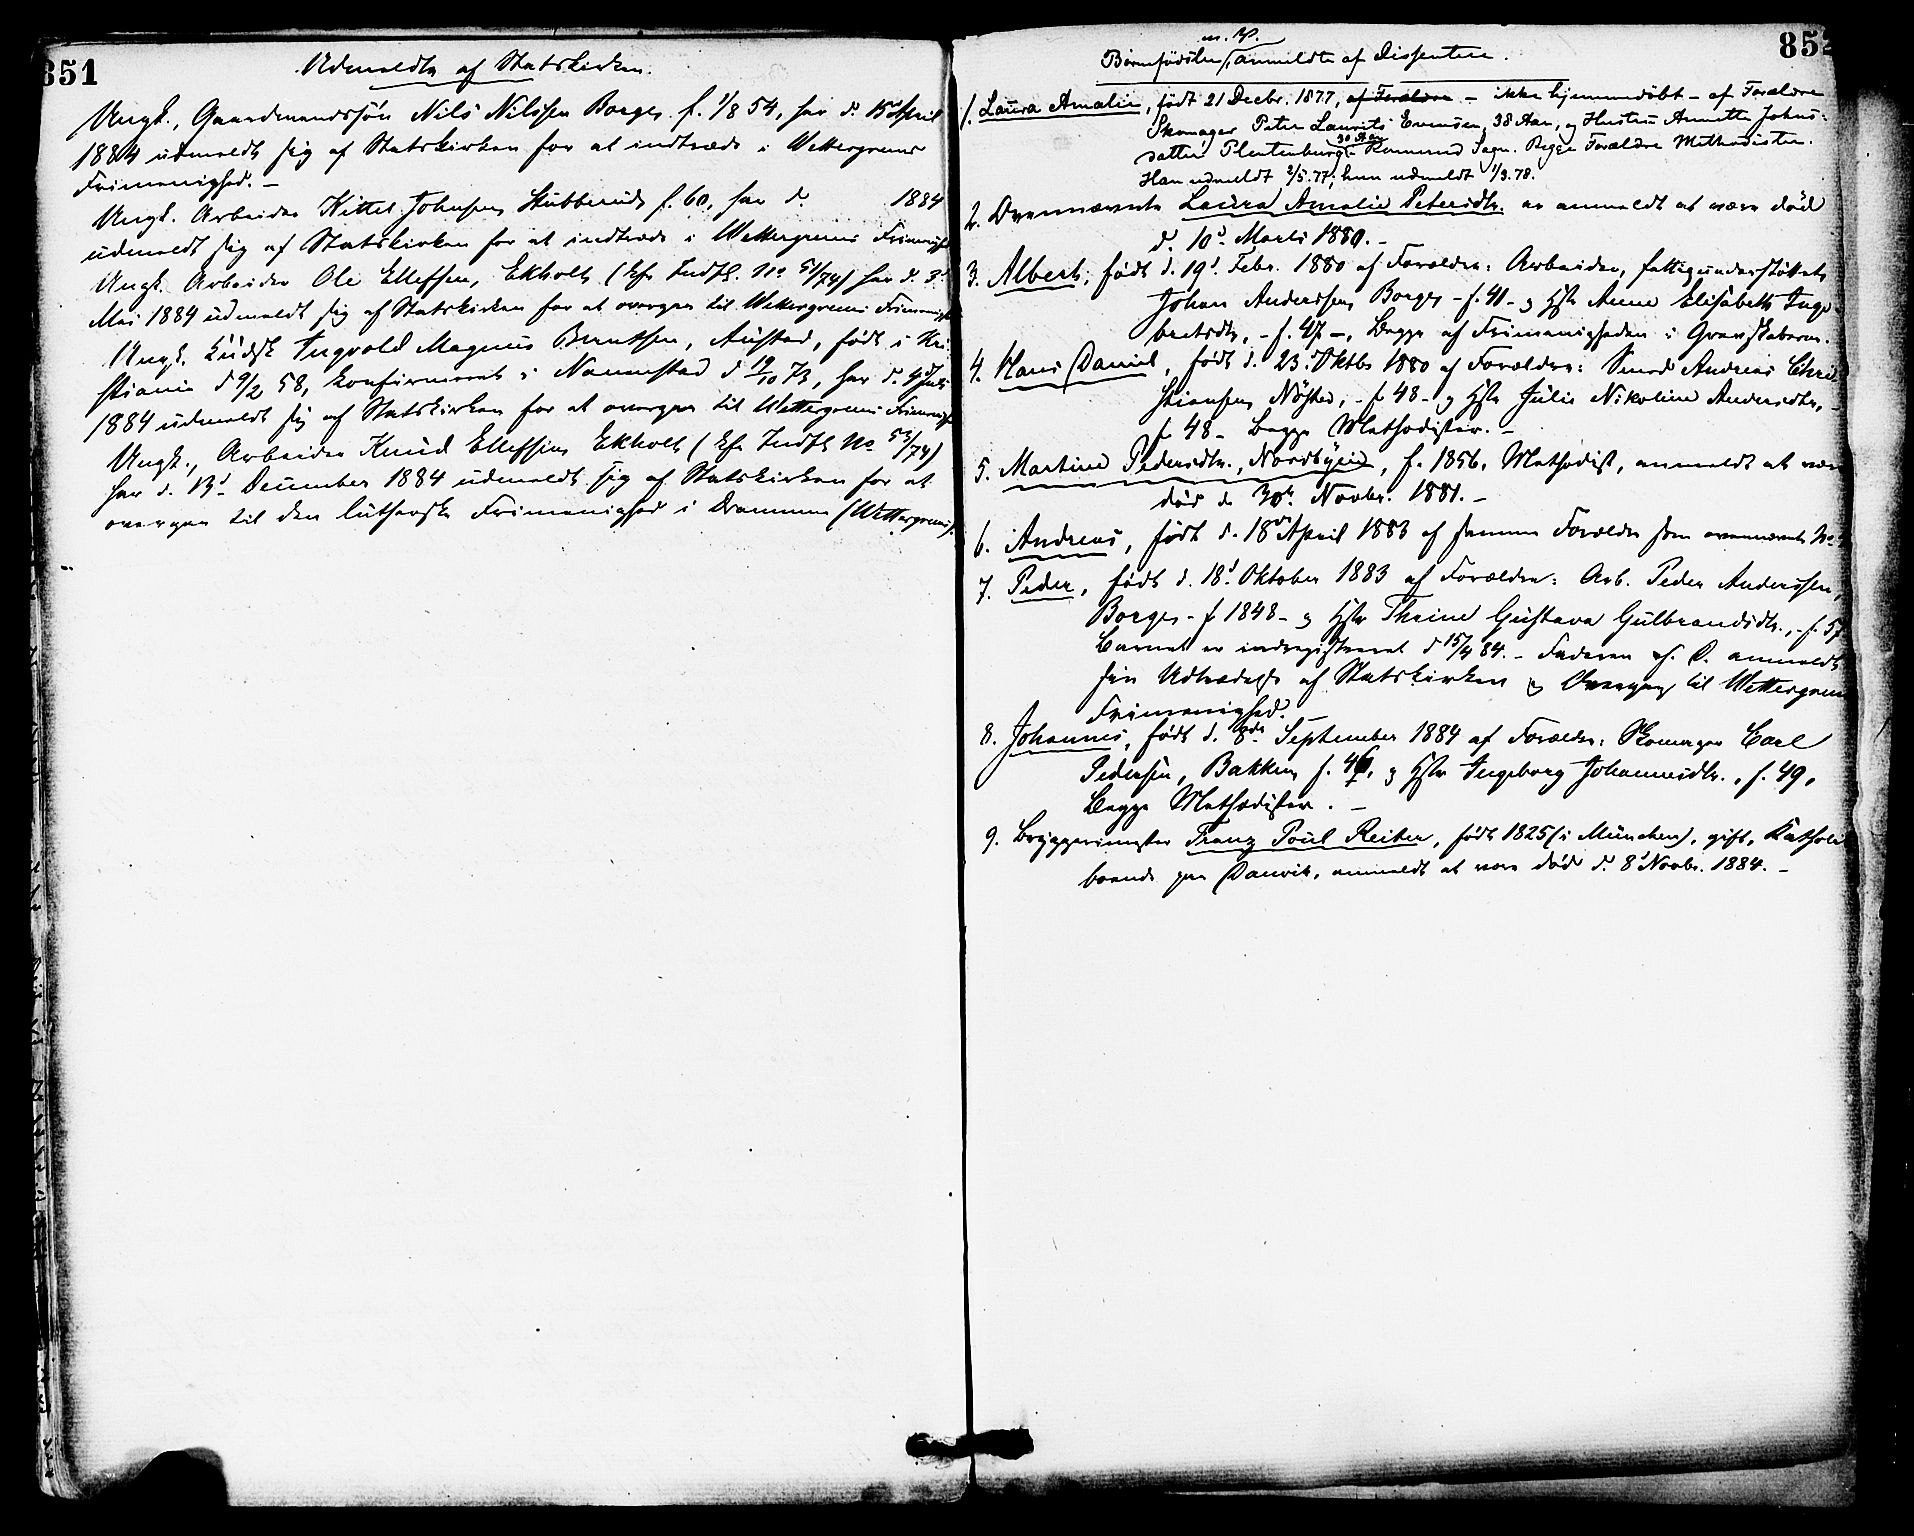 851
Udmeldte af Statskirken.
Ungk., Gaardmandssøn Nils Nilssen Borge, f. 1/8 54, har d. 15de April
1884 udmeldt sig af Statskirken for at indtræde i Wettergrens
Frimenighed. –
Ungk. Arbeider Kittel Johnsen Stubberud f. 60, har d. 1884
udmeldt sig af Statskirken for at indtræde i Wettergrens Frimenigh
Ungk. Arbeider Ole Ellefsen, Ekholt (Cfr Indfl. No 51/74) har d. 3d
Mai 1884 udmeldt sig af Statskirken for at overgaa til Wettergrens Frimenigh
Ungk. Kudsk Ingvald Magnus Berntsen, Austad, født i Kri
stiania d 9/2 58, konfirmeret i Nannestad d 19/10 73, har d. 4d Juli
1884 udmeldt sig af Statskirken for at overgaa til Wettergrens Frimenigh
Ungk., Arbeider Knud Ellefsen Ekholt (Cfr Indfl No 53/74)
har d. 13d December 1884 udmeldt sig af Statskirken for at
overgaa til den lutherske Frimenighed i Drammen (Wettergrens).
852
m. V.
Børnefødsler, anmeldte af Dissentere.
1. Laura Amalie, født 21 Decbr. 1877, af Forældre – ikke hjemmedøbt – af Forældre
Skomager Peter Laurits Evensen, 38 Aar, og Hustru Annette Johns-
datter Plentenburg, 30 Aar Romerud Sogn. Begge Forældre Methodister.
Han udmeldt 2/5.77; hun udmeldt 1/3.78.
2. Ovennævnte Laura Amalie Petersdtr. er anmeldt at være død
d. 10d Marts 1880. –
3. Albert, født d. 19d Febr. 1880 af Forældre: Arbeider, fattigunderstøttet
Johan Anderssen Borge – f. 41 – og Hstr Anne Elisabeth Inge-
bretsdtr, – f. 47 –, Begge af Frimenigheden i Grevskaberne.
4. Hans Daniel, født d. 23d Oktbr 1880 af Forældre: Smed Andreas Chri-
stiansen Nøsted, – f. 48 – og Hstr Julie Nikoline Andersdtr, –
f. 48 – Begge Methodister. –
5. Martine Pedersdtr., Nordbyeie, f. 1856, Methodist, anmeldt at være
død d. 30te Novbr. 1881. –
6. Andreas, født d. 18de April 1883 af samme Forældre som ovennævnte No 4
7. Peder, født d. 18d Oktober 1883 af Forældre: Arb. Peder Anderssen,
Borge – f 1848 – og Hstr Thrine Gustava Gulbrandsdtr., – f. 57
Barnet er indregistreret d 15/4 84. – Faderen s. D. anmeldt
sin Udtrædelse af Statskirken og Overgang til Wettergrens
Frimenighed. –
8. Johannes, født d. 8de September 1884 af Forældre: Skomager Carl
Pedersen, Bakken f. 46, og Hstr Ingeborg Johannesdtr., f. 49,
Begge Methodister. –
9. Bryggerimester Franz Poul Reiter, født 1825 (i München), gift, Katholik
boende paa Danvik, anmeldt at være død d. 8d Novbr. 1884. –